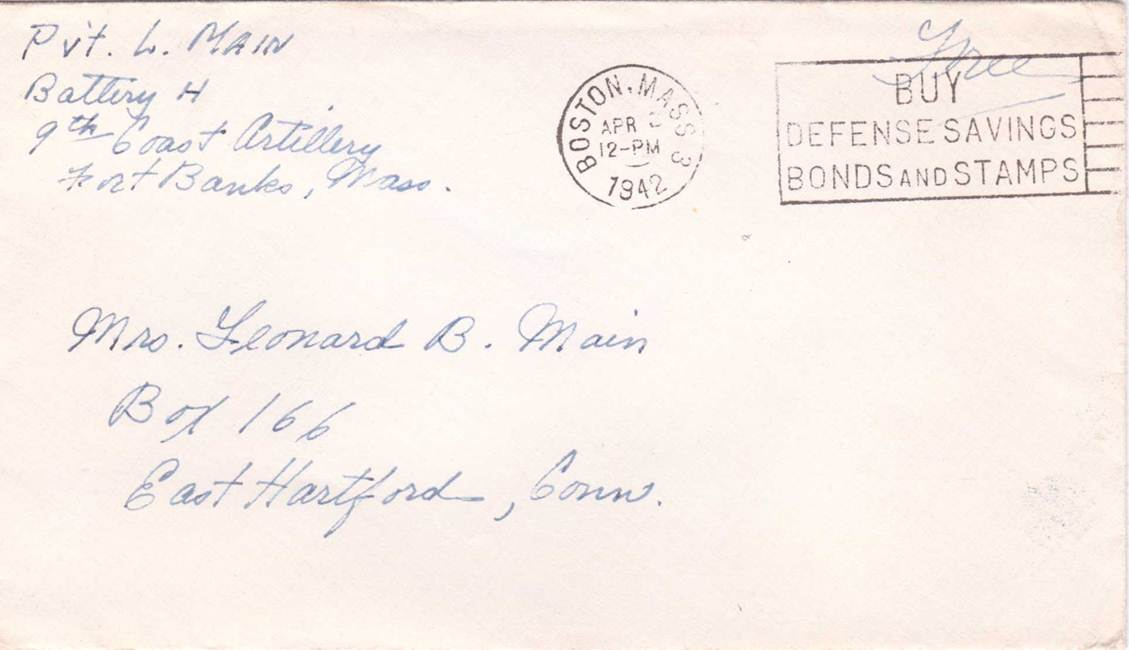 Pvt. L. MAIN
Battery H
9th Coast Artillery
Fort Banks, Mass.
BOSTON, MASS 3
APR
12-PM
1942
Free
BUY
DEFENSE SAVINGS
BONDS AND STAMPS
Mrs. Leonard B. Main
Box 166
East Hartford, Conn.